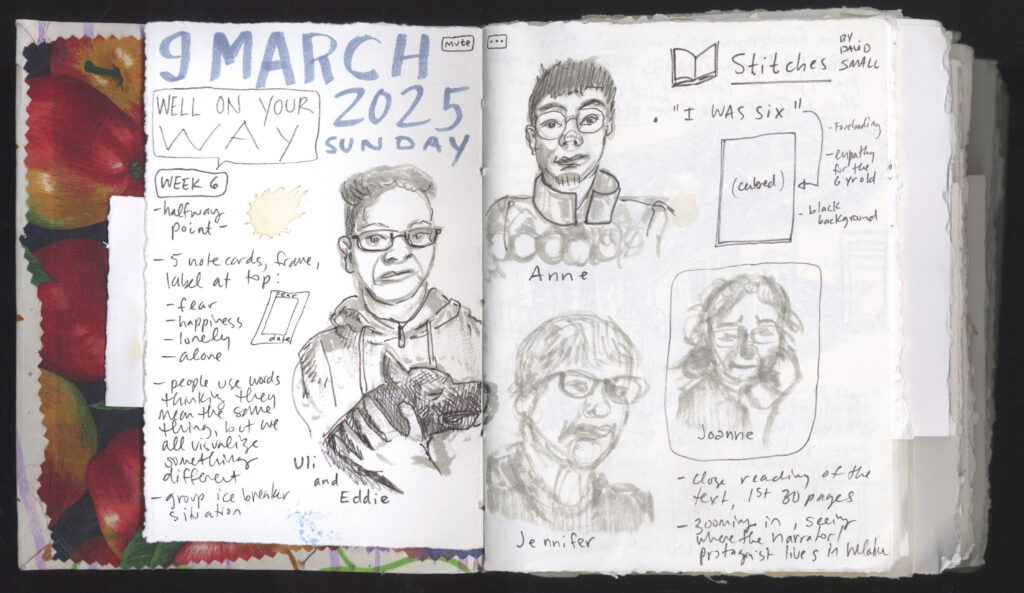 9 MARCH
2025
SUNDAY
WELL ON YOUR
WAY
WEEK 6
- halfway
point -
- 5 note cards, frame,
label at top:
- fear
- happiness
- lonely
- alone
fear
date
- people use words
thinking they
mean the same
thing, but we
all visualize
something
different
- group ice breaker
situation
Uli
and
Eddie
Mute
...
Anne
Stitches
BY
DAVID
SMALL
"I WAS SIX"
(centered)
- Foreboding
- empathy
for the
6 yr old
- black
background
Jennifer
Joanne
- close reading of the
text, 1st 30 pages
- zooming in, seeing
where the narrator/
protagonist lives in